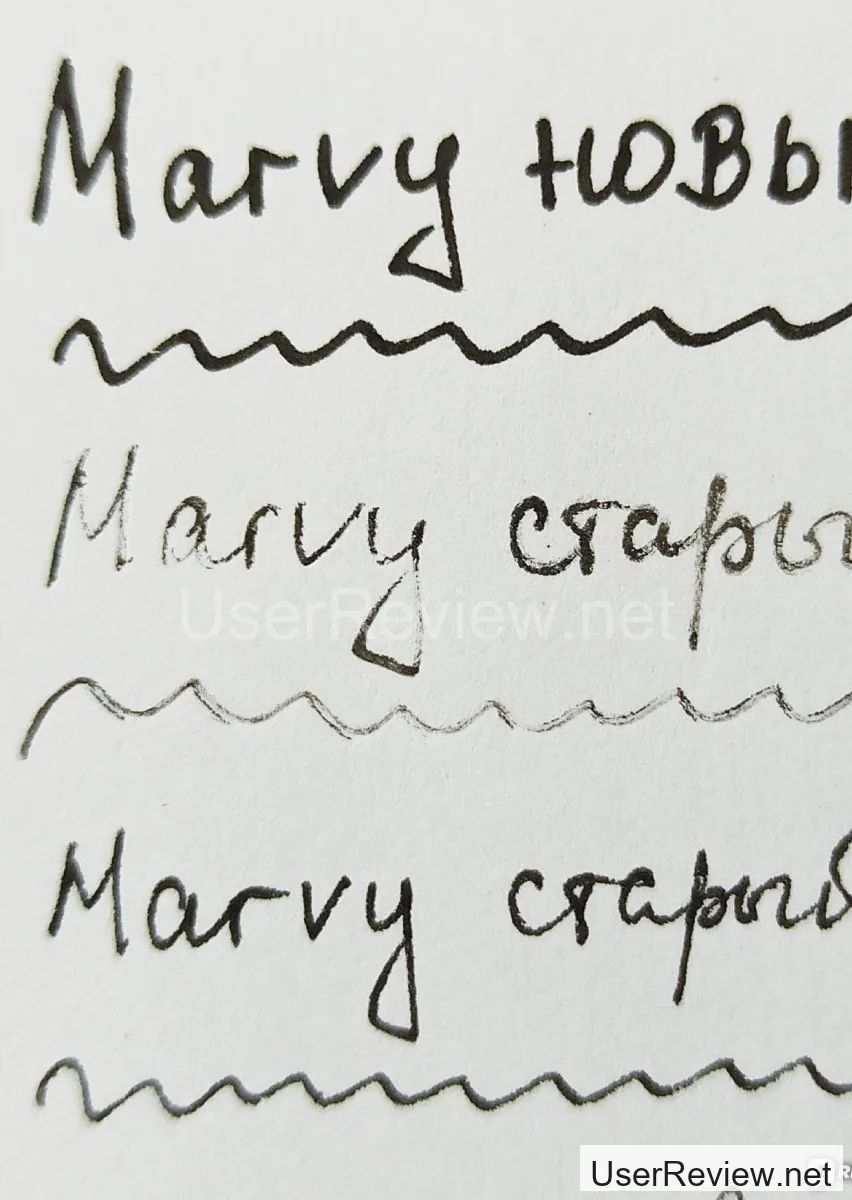 Marvy новы
Marvy стары
UserReview.net
Marvy старый
UserReview.net